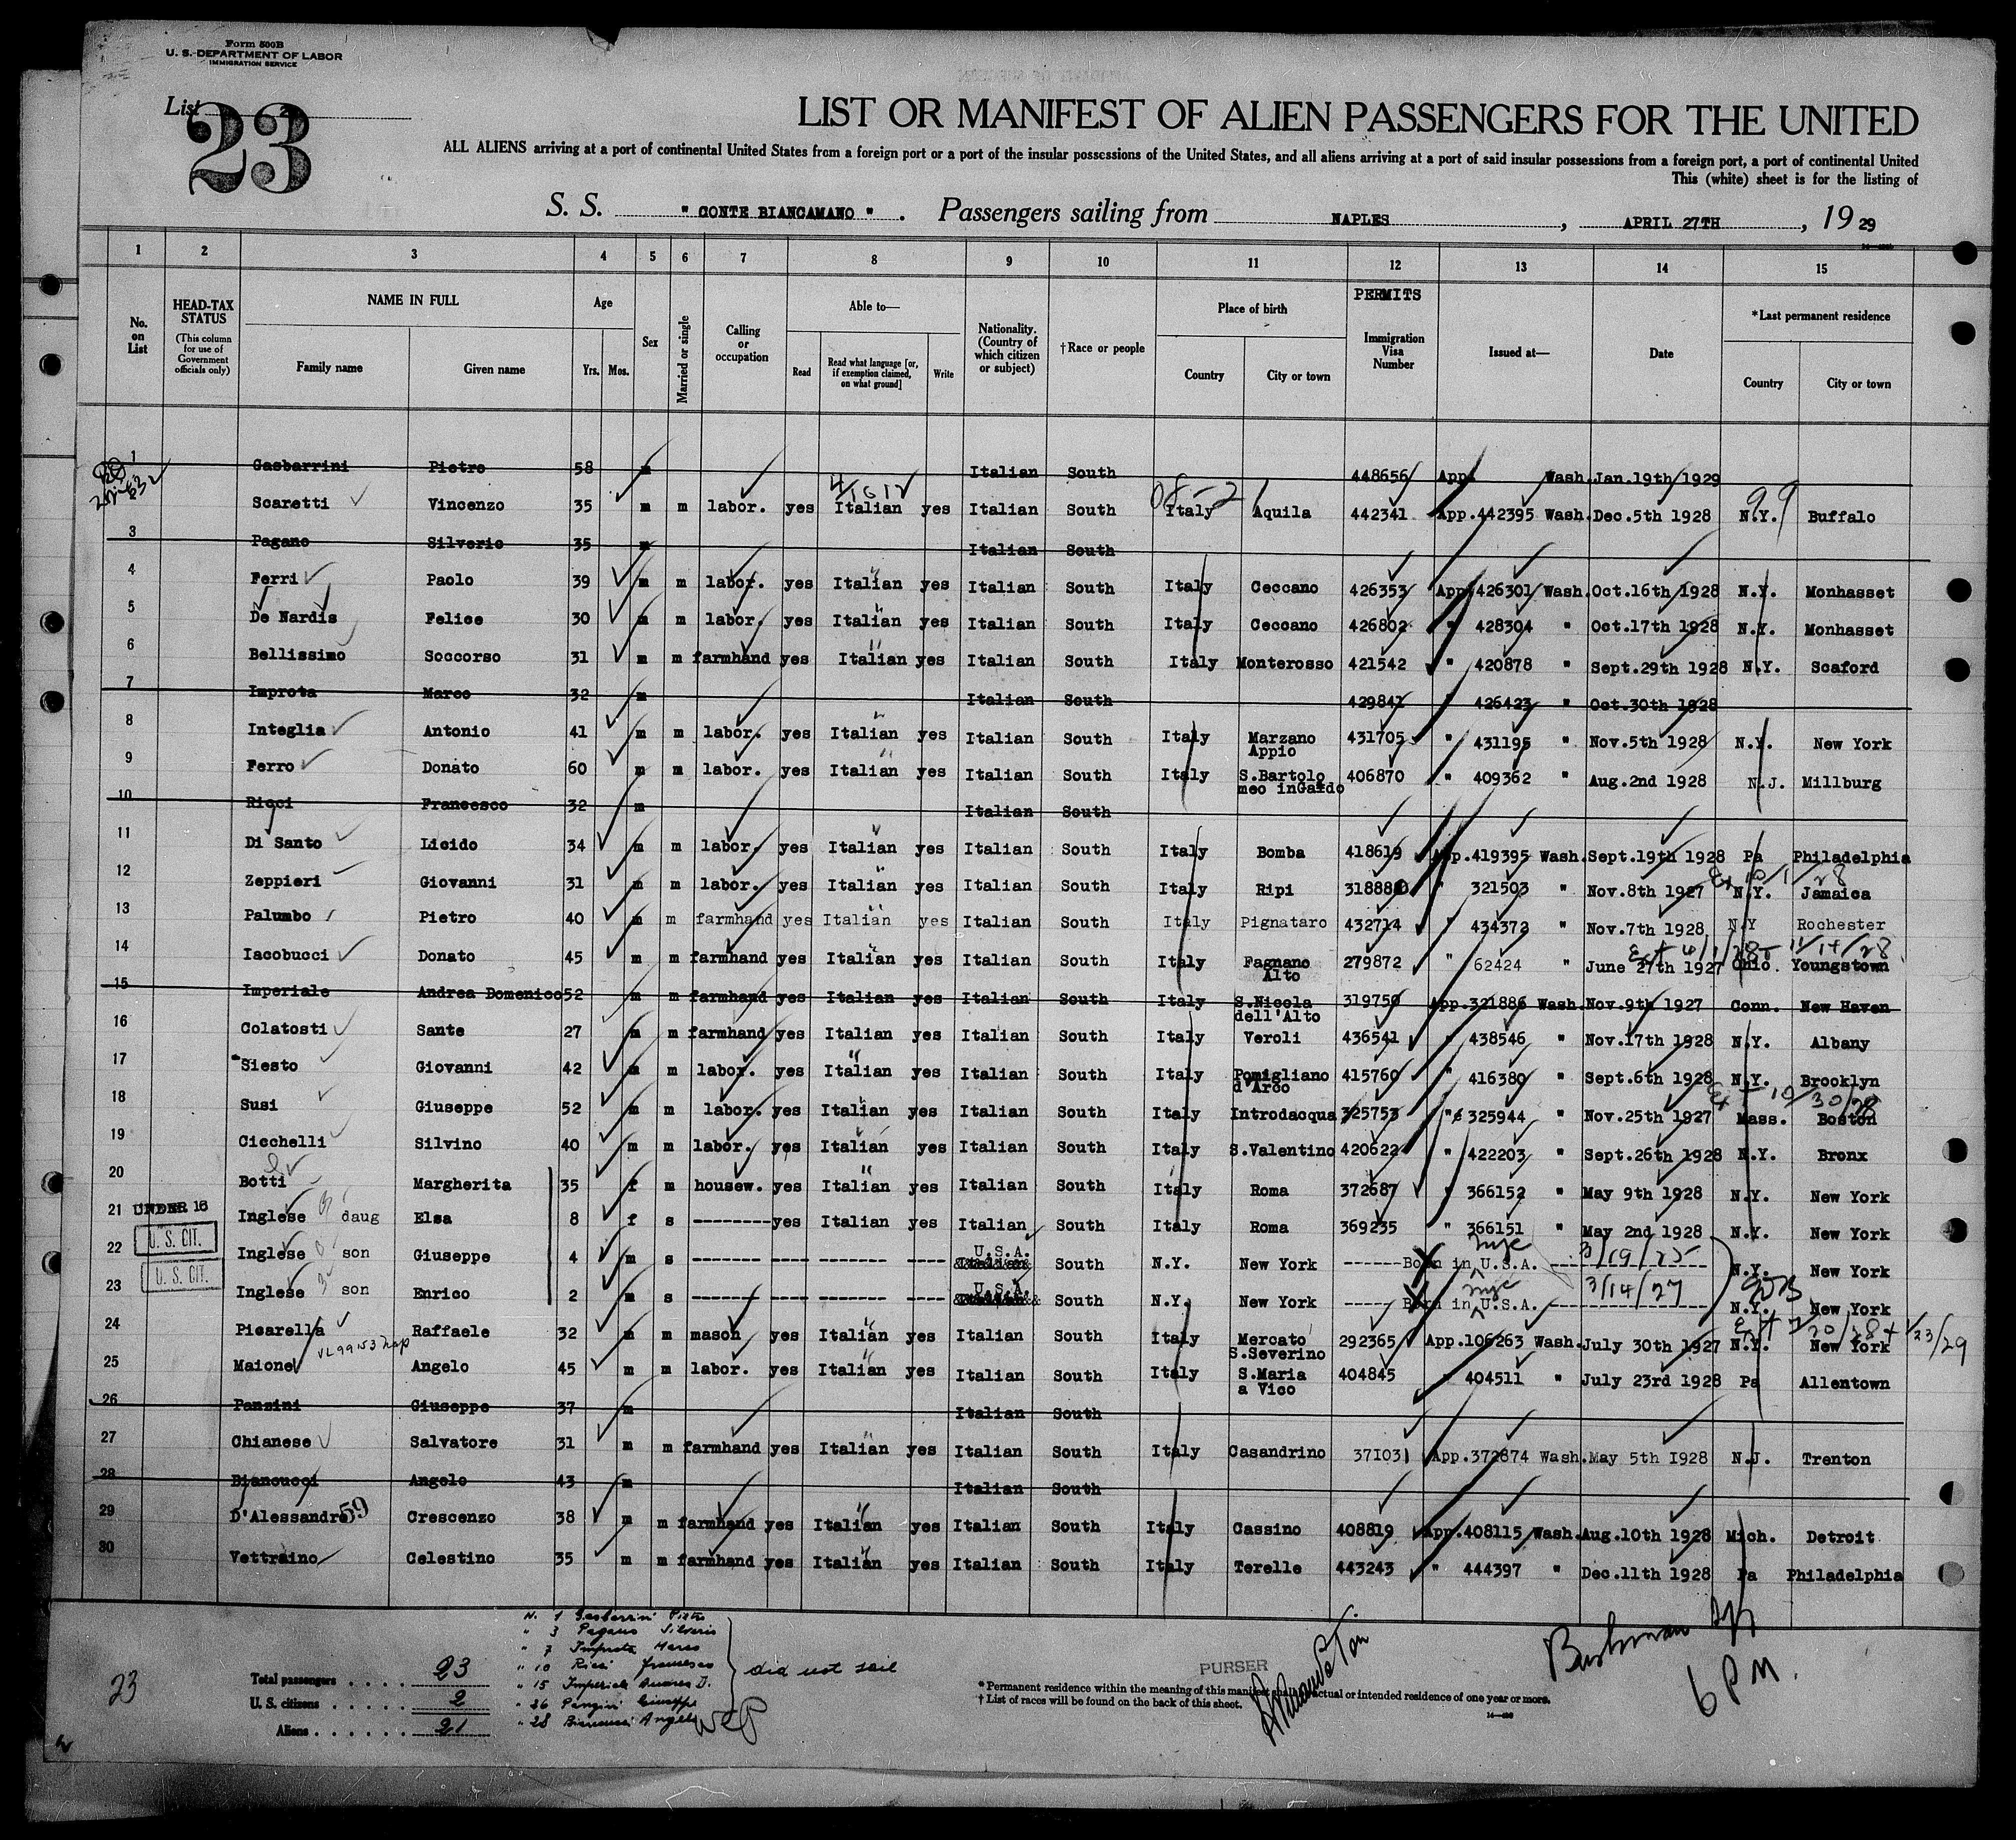 Form 500B
U. S. DEPARTMENT OF LABOR
IMMIGRATION SERVICE
List 2
23
LIST OR MANIFEST OF ALIEN PASSENGERS FOR THE UNITED
ALL ALIENS arriving at a port of continental United States from a foreign port or a port of the insular possessions of the United States, and all aliens arriving at a port of said insular possessions from a foreign port, a port of continental United
This (white) sheet is for the listing of
S. S. " CONTE BIANCAMANO " . Passengers sailing from NAPLES , APRIL 27TH , 19 29
1 2 3 4 5 6 7 8 9 10 11 12 13 14 15
No. on List
HEAD-TAX STATUS (This column for use of Government officials only)
NAME IN FULL Family name Given name
Age Yrs. Mos.
Sex
Married or single
Calling or occupation
Able to— Read Read what language [or, if exemption claimed, on what ground] Write
Nationality. (Country of which citizen or subject)
†Race or people
Place of birth Country City or town
PERMITS Immigration Visa Number
Issued at—
Date
*Last permanent residence Country City or town
1 Gasbarrini Pietro 58 m Italian South 448656 App. Wash. Jan.19th 1929
4/1612 08-2 99
Scaretti Vincenzo 35 m m labor. yes Italian yes Italian South Italy Aquila 442341 App.442395 Wash. Dec.5th 1928 N.Y. Buffalo
3 Pagano Silverio 35 m Italian South
4 Ferri Paolo 39 m m labor. yes Italian yes Italian South Italy Ceccano 426353 App.426301 Wash. Oct.16th 1928 N.Y. Monhasset
5 De Nardis Felice 30 m m labor. yes Italian yes Italian South Italy Ceccano 426802 " 428304 " Oct.17th 1928 N.Y. Monhasset
6 Bellissimo Soccorso 31 m m farmhand yes Italian yes Italian South Italy Monterosso 421542 " 420878 " Sept.29th 1928 N.Y. Scaford
7 Improta Marco 32 m Italian South 429841 " 426423 " Oct.30th 1928
8 Integlia Antonio 41 m m labor. yes Italian yes Italian South Italy Marzano Appio 431705 " 431195 " Nov.5th 1928 N.Y. New York
9 Ferro Donato 60 m m labor. yes Italian yes Italian South Italy S.Bartolo meo inGaldo 406870 " 409362 " Aug.2nd 1928 N.J. Millburg
10 Ricci Francesco 32 m Italian South
11 Di Santo Licido 34 m m labor. yes Italian yes Italian South Italy Bomba 418619 App.419395 Wash. Sept.19th 1928 Pa Philadelphia
12 Zeppieri Giovanni 31 m m labor. yes Italian yes Italian South Italy Ripi 318880 " 321503 " Nov.8th 1927 N.Y. Jamaica
13 Palumbo Pietro 40 m m farmhand yes Italian yes Italian South Italy Pignataro 432714 " 434372 " Nov.7th 1928 N.Y Rochester
14 Iacobucci Donato 45 m m farmhand yes Italian yes Italian South Italy Fagnano Alto 279872 " 62424 " June 27th 1927 Ohio Youngstown
15 Imperiale Andrea Domenico 52 m m farmhand yes Italian yes Italian South Italy S.Nicola dell'Alto 319750 App.321886 Wash. Nov.9th 1927 Conn. New Haven
16 Colatosti Sante 27 m m farmhand yes Italian yes Italian South Italy Veroli 436541 " 438546 " Nov.17th 1928 N.Y. Albany
17 Siesto Giovanni 42 m m labor. yes Italian yes Italian South Italy Pomigliano d'Arco 415760 " 416380 " Sept.6th 1928 N.Y. Brooklyn
18 Susi Giuseppe 52 m m labor. yes Italian yes Italian South Italy Introdacqua 325753 " 325944 " Nov.25th 1927 Mass. Boston
19 Cicchelli Silvino 40 m m labor. yes Italian yes Italian South Italy S.Valentino 420622 " 422203 " Sept.26th 1928 N.Y. Bronx
20 Botti Margherita 35 f m housew. yes Italian yes Italian South Italy Roma 372687 " 366152 " May 9th 1928 N.Y. New York
21 UNDER 16 Inglese daug Elsa 8 f s -------- yes Italian yes Italian South Italy Roma 369235 " 366151 " May 2nd 1928 N.Y. New York
U. S. CIT.
22 Inglese son Giuseppe 4 m s ------- ---- ------- ---- U.S.A. South N.Y. New York ------ Born in nyc U.S.A. 3/19/25 N.Y. New York
U. S. CIT.
23 Inglese son Enrico 2 m s ------- ---- ------- ---- U.S.A. South N.Y. New York ----- Born in nyc U.S.A. 3/14/27 N.Y. New York
24 Picarella Raffaele 32 m m mason yes Italian yes Italian South Italy Mercato S.Severino 292365 App.106263 Wash. July 30th 1927 N.Y. New York
25 Maione Angelo 45 m m labor. yes Italian yes Italian South Italy S.Maria a Vico 404845 " 404511 " July 23rd 1928 Pa Allentown
26 Panzini Giuseppe 37 m Italian South
27 Chianese Salvatore 31 m m farmhand yes Italian yes Italian South Italy Casandrino 371031 App.372874 Wash. May 5th 1928 N.J. Trenton
28 Biancucci Angelo 43 m Italian South
29 D'Alessandro 59 Crescenzo 38 m m farmhand yes Italian yes Italian South Italy Cassino 408819 App.408115 Wash. Aug.10th 1928 Mich. Detroit
30 Vettraino Celestino 35 m m farmhand yes Italian yes Italian South Italy Terelle 443243 " 444397 " Dec.11th 1928 Pa Philadelphia
N. 1 Gasbarrini Pietro
" 3 Pagano Silverio
" 7 Improta Marco
" 10 Ricci Francesco
" 15 Imperiale Andrea D.
" 26 Panzini Giuseppe
" 28 Biancucci Angelo
did not sail
23
Total passengers . . . . 23
U. S. citizens . . . . . 2
Aliens . . . . . . 21
PURSER
* Permanent residence within the meaning of this manifest shall be actual or intended residence of one year or more.
† List of races will be found on the back of this sheet.
6 PM.